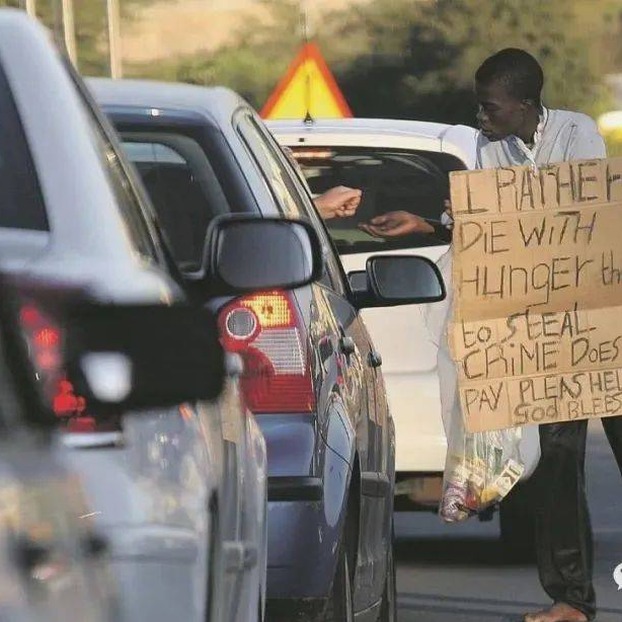 I RATHER
DIE WITH
HUNGER th
to STEAL
CRIME DOES
PAY PLEAS HEL
GOD BLESS